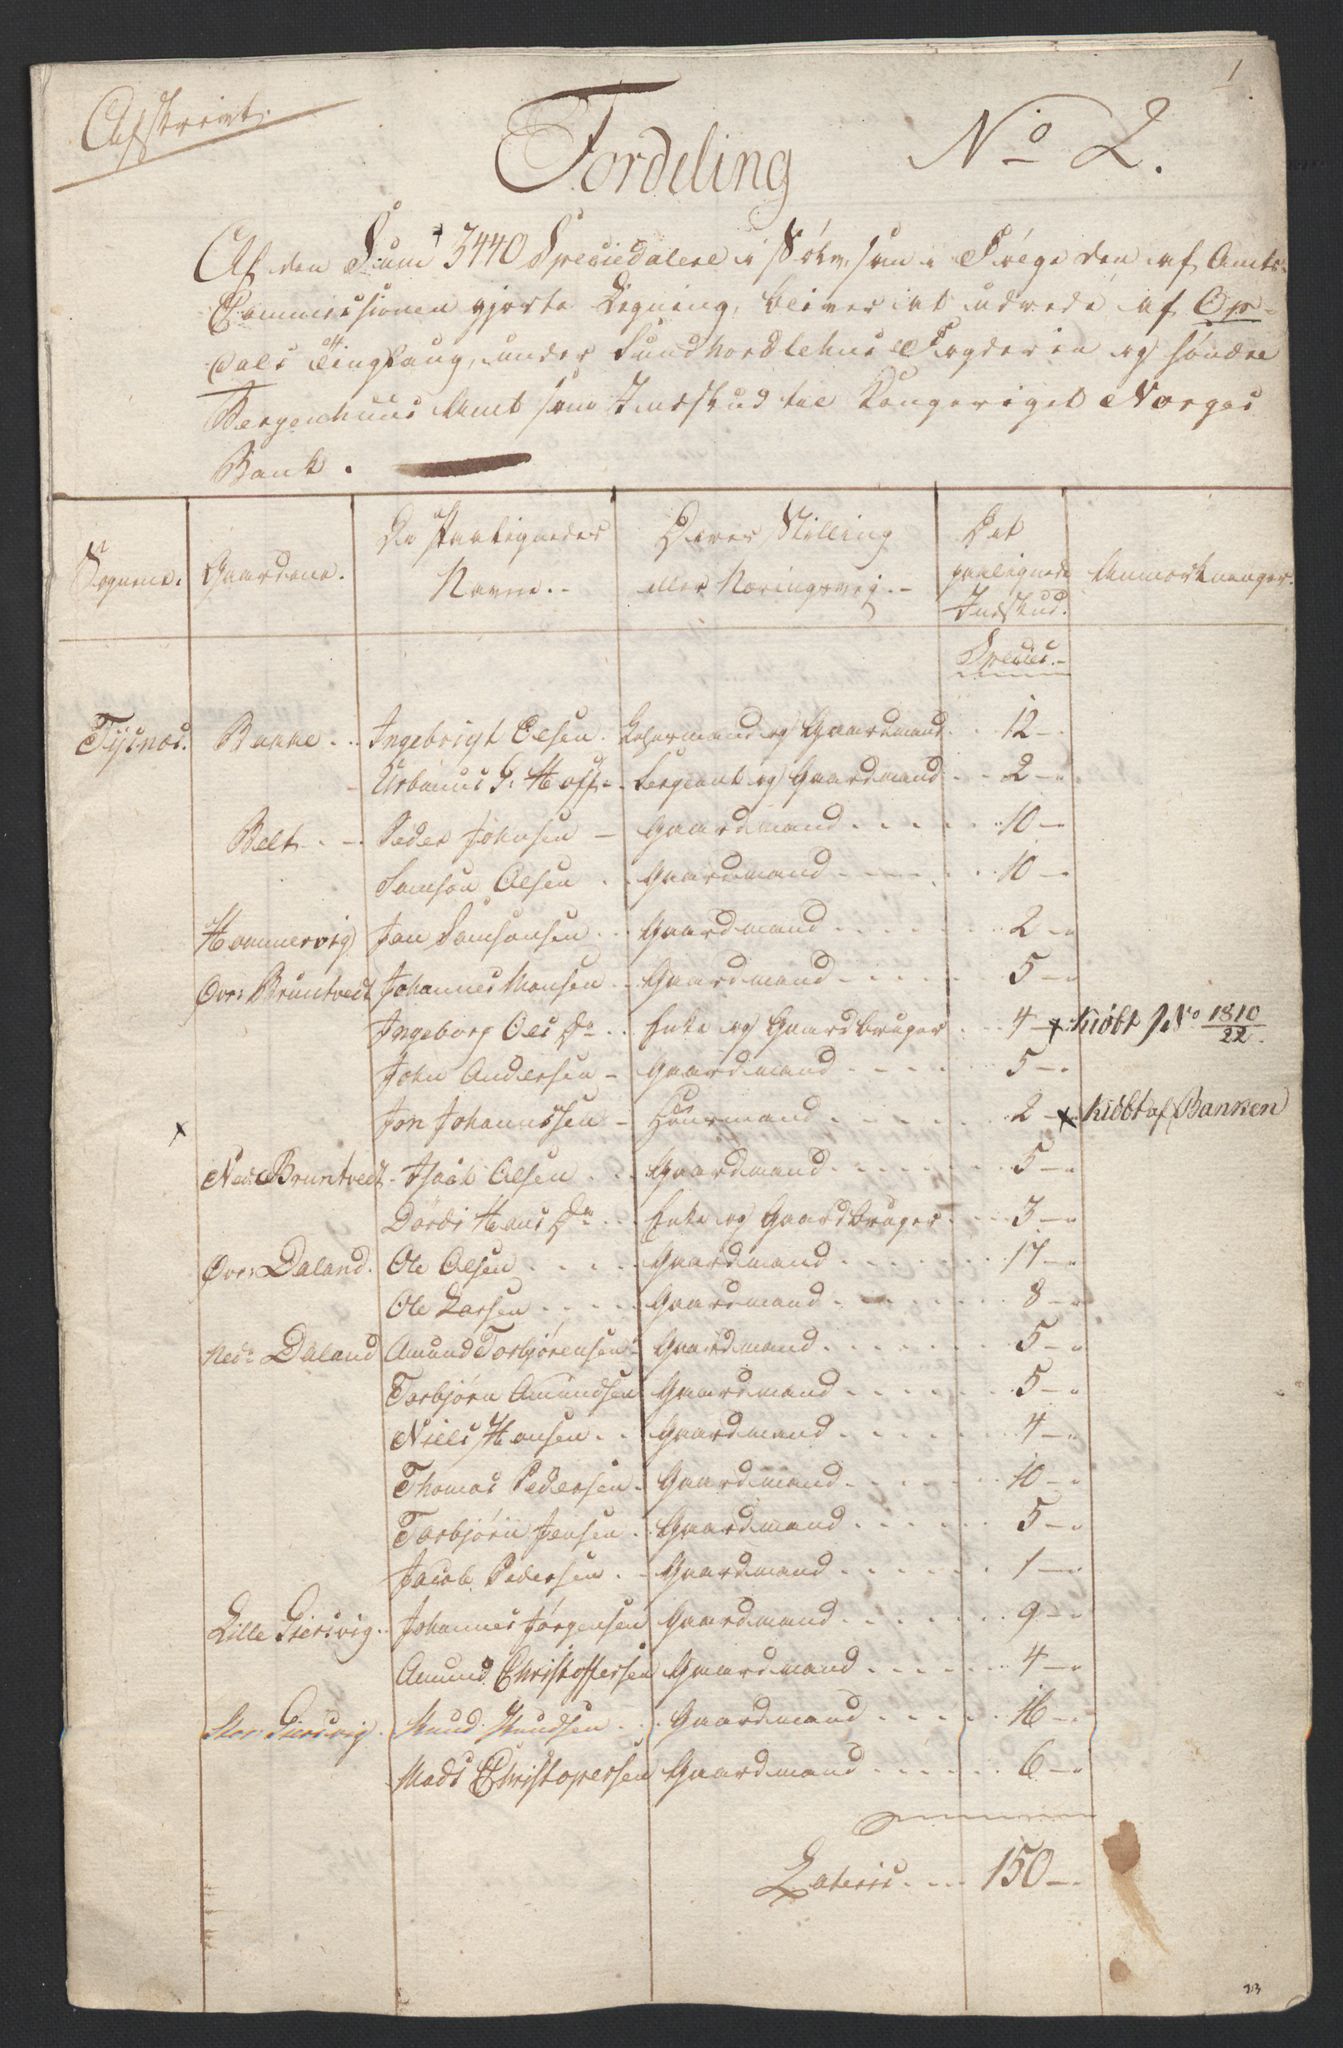 1
Afskrivt.
Fordeling No 2.
Af den Sum 3440 Speciedalere i Sølv, som i Følge den af Amts-
Commissionen gjorte Ligning, bliver at udrede af Op-
dals Tinglaug, under Sundhordlehns Fogderie og søndre
Bergenhuus Amt som Indskud til Kongeriget Norges
Bank.
Sognene. Gaardene. De Paalignedes Navne. Deres Stilling eller Næringsvej. Det paalignede Indskud. Anmærkninger.
Species.
Tysnæs. Bakke Ingebrigt Olsen. Lehnsmand og Gaardmand 12
Urbanus J: Hoff Sergeant og Gaardmand 2
Belt Peder Johnsen Gaardmand 10
Samson Olsen Gaardmand 10
Hammervig Jon Samsonsen Gaardmand 2
Øvr: Bruntvedt Johannes Monsen Gaardmand 5
Ingeborg Ols Dr Enke og Gaardbruger 4 x Kiøbt No 1810/22.
John Andersen Gaardmand 5
x Jon Johannssen Huusmand 2 x Kiøbt af Banken
Ned: Bruntvedt Isaak Olsen Gaardmand 5
Dordi Hans Dr Enke og Gaardbruger 3
Øvr: Daland. Ole Olsen Gaardmand 17
Ole Larsen Gaardmand 8
Ned: Daland Amund Torbjørensen Gaardmand 5
Torbjørn Amundsen Gaardmand 5
Niels Hansen Gaardmand 4
Thomas Pedersen Gaardmand 10
Torbjørn Jensen Gaardmand 5
Jacob Pedersen Gaardmand 1
Lille Giersvig Johannes Jørgensen Gaardmand 9
Amund Christoffersen Gaardmand 4
Stor: Giersvig Knud Knudsen Gaardmand 16
Mads Christopersen Gaardmand 6
Lateris 150